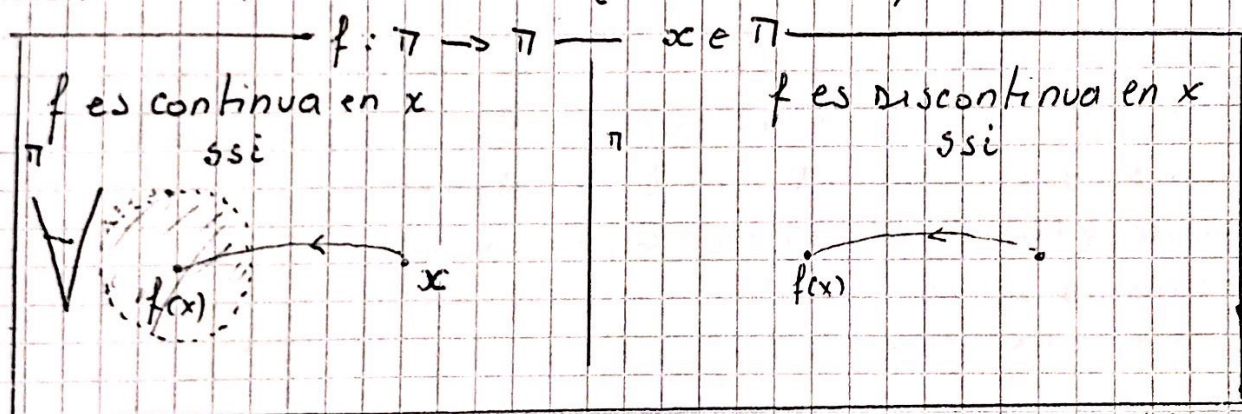 f : π → π — x ∈ π
f es continua en x
ssi
π
∀
f(x)
x
f es Discontinua en x
ssi
π
f(x)